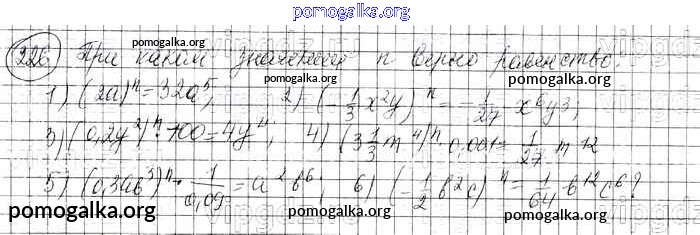 pomogalka.org
226 При каком значении n верно равенство:
pomogalka.org pomogalka.org pomogalka.org
1) (2a)ⁿ = 32a⁵; 2) (-1/3 x²y)ⁿ = -1/27 x⁶y³;
3) (0,2y²)ⁿ · 100 = 4y⁴; 4) (3 1/3 m⁴)ⁿ · 0,001 = 1/27 m¹²
pomogalka.org
5) (0,3ab³)ⁿ · 1/0,09 = a²b⁶; 6) (-1/2 b²c)ⁿ = 1/64 b¹²c⁶?
pomogalka.org pomogalka.org pomogalka.org